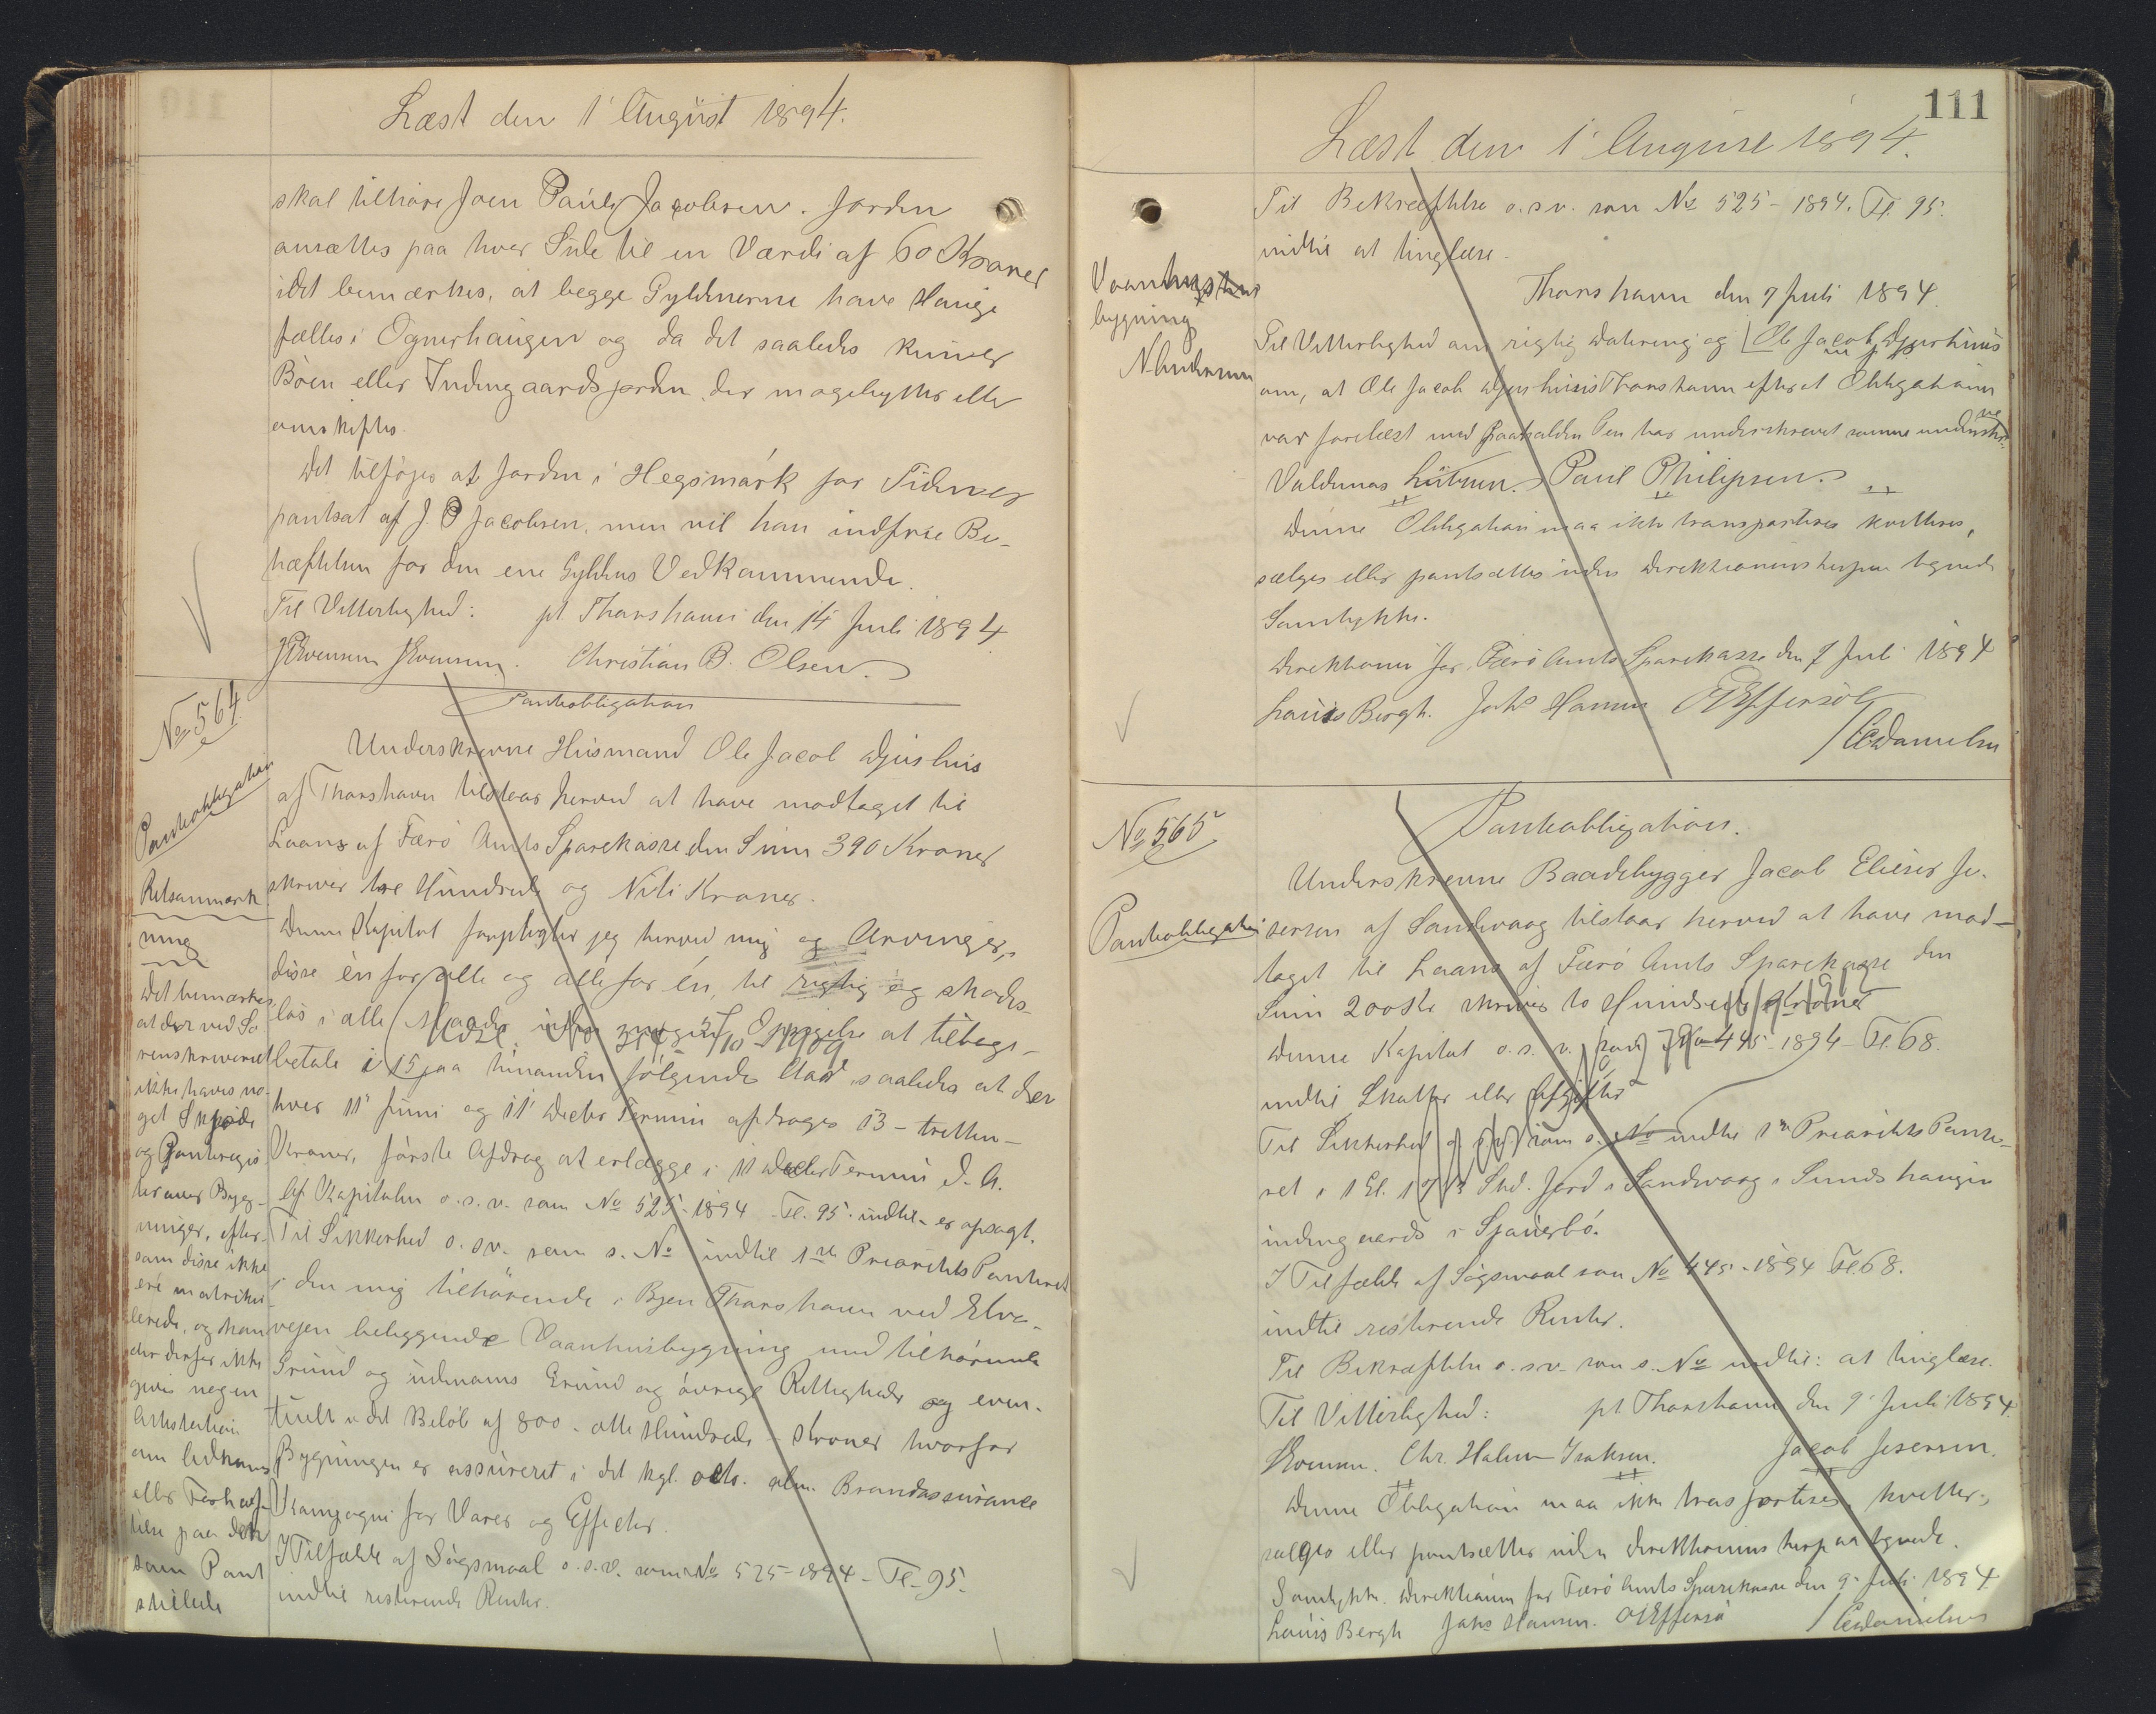 Læst den 1' August 1894.
skal tilhøre Joen Pauly Jacobsen. Jorden
ansættes paa hver Side til en Værdi af 60 Kroner
idet bemærkes, at begge Gyldnerne have Hauge
fælles i Ognerhaugen og da det saaledes kun er
Bøen eller Indengaardsjorden der magebyttes eller
omskiftes.
Det tilføjes at Jorden i Hegsmark for Tiden er
pantsat af J. P Jacobsen, men vil han indfrie Be-
hæftelsen for den ene Gyldens Vedkommende.
Til Vitterlighed: pt Thorshavn den 14 Juli 1894
Evensen JEvensen. Christian B. Olsen.
No 564.
Pantobligation
Pantobligation
Underskrevne Husmand Ole Jacob Djurhuus
af Thorshavn tilstaar herved at have modtaget til
Laans af Færø Amts Sparekasse den Sum 390 Kroner
skriver tre Hundrede og Niti Kroner.
Denne Kapital forpligter jeg herved mig og Arvinger,
disse én for alle og alle for én, til rigtig og skades-
løs i alle Maader uden Opsigelse at tilbage-
betale i 15 paa hinanden følgende Aar, saaledes at der
hver 11' Juni og 11' Decbr Termin afdrages 13 - tretten -
Kroner, første Afdrag at erlægge i 11 Decbr Termin d. A.
Af Kapitalen o. s. v. som No 525-1894 - Fl. 95. indtil - er opsagt.
Til Sikkerhed o. s v. som s. No indtil 1ste Prioritets Panteret
i den mig tilhørende i Byen Thorshavn ved Elve-
vejen beliggende Vaanhusbygning med tilhørende
Grund og udenoms Grund og øvrige Rettigheder og even-
tuelt i det Beløb af 800 - otte Hundrede - Kroner hvorfor
Bygningen er assureret i det kgl. octr. alm. Brandassurance
Kompagni for Varer og Effecter.
I Tilfælde af Søgsmaal o. s. v. som No 525-1894 - Fl. 95.
indtil resterende Renter.
Retsanmærk
ning
Det bemærkes
at der ved So
renskriveriet
ikke haves no-
get Skjøde
og Panteregis
ter over Byg-
ninger, efter-
som disse ikke
ere matriku
lerede, og kan
der derfor ikke
gives nogen
Attestation
om Adkomst
eller Behæf-
telse paa det
som Pant
stillede
111
Læst den 1' August 1894.
Til Bekræftelse o. s v. som No 525 - 1894. Fl. 95.
indtil at tinglæse.
Vaanhus
bygning
Thorshavn den 7 Juli 1894.
Til Vitterlighed om rigtig Datering og Ole Jacob Djurhuus
om, at Ole Jacob Djurhuus Thorshavn efter at Obligationen
var forelæst med paaholden Pen har underskrevet samme
Valdemar Lützen. Paul Philipsen.
Denne Obligation maa ikke transporteres kvitteres,
sælges eller pantsættes uden Direktionens herpaa tegnede
Samtykke.
Direktionen for Færø Amts Sparekasse den 7 Juli 1894
Louis Bergh. Johs Hansen OJEffersøe
/CDanielsen
No 565
Pantobligation
Pantobligation.
Underskrevne Baadebygger Jacob Elieser Je-
sersen af Sandvaag tilstaar herved at have mod-
taget til Laans af Færø Amts Sparekasse den
Sum 200 Kr skriver to Hundrede Kroner
Denne Kapital o. s. v. som No 445 - 1894 - Fl. 68.
indtil Skatter eller Afgifter
Til Sikkerhed o. s. v. som s. No indtil 1ste Prioritets Pante-
ret i 1 Gl. Skd. Jord i Sandvaag i Sunds haugin
indengaards i
I Tilfælde af Søgsmaal som No 445 - 1894 Fl. 68.
indtil resterende Renter.
Til Bekræftelse o. s v. som s. No indtil: at tinglæse.
Til Vitterlighed: pt Thorshavn den 9' Juli 1894.
Evensen. Chr. Holm Isaksen. Jacob Jesersen.
Denne Obligation maa ikke transporteres, kvitter-,
sælges eller pantsættes uden Direktionens herpaa tegnede
Samtykke. Direktionen for Færø Amts Sparekasse den 9' Juli 1894
Louis Bergh Johs Hansen. OJEffersøe /CDanielsen